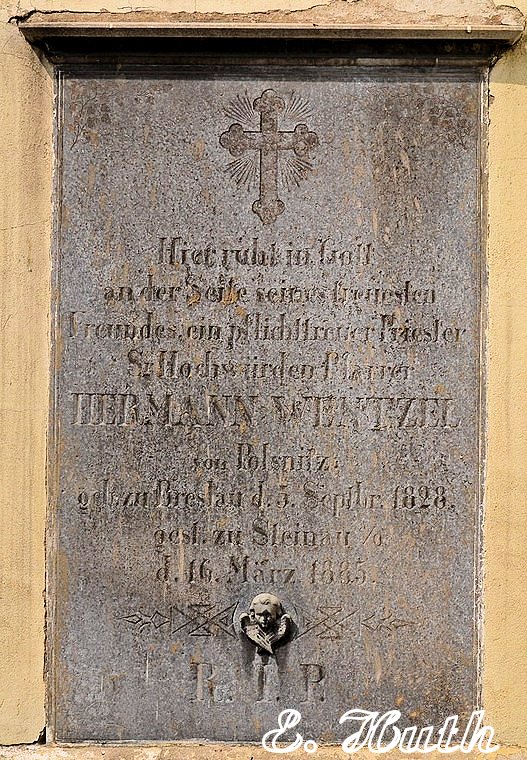 Hier ruht in Gott
an der Seite seines treuesten
Freundes, ein pflichttreuer Priester
Sr. Hochwürden Pfarrer
HERMANN WENTZEL
von Polsnitz,
geb. zu Breslau d. 5. Septbr. 1828.
gest. zu Steinau ⁠a/o
d. 16. März 1885.
R. I. P.
E. Huth